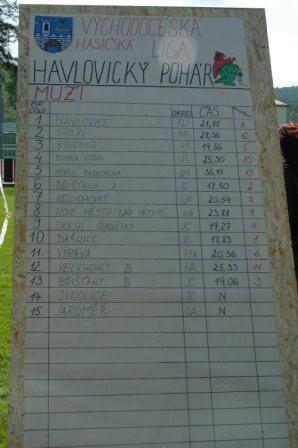 VÝCHODOČESKÁ
HASIČSKÁ LIGA
HAVLOVICKÝ POHÁR
MUŽI
POŘ. ČÍSLO OKRES ČAS
1 HAVLOVICE TU 21,85 8
2 STOLÍN NA 27,36
3 ROUDNICE HK 19,56 5
4 DOBRÁ VODA JC 25,30 10
5 HORNÍ RADECHOVÁ NA 35,47 13
6 BŘÍŠŤANY A JC 18,50 2
7 VELICHOVKY NA 20,59 7
8 NOVÉ MĚSTO NAD METUJÍ NA 23,88 9
9 DOLNÍ ČERNŮTKY JC 19,27 4
10 BAŠNICE JC 17,83 1
11 VÝRAVA HK 20,36 6
12 VELICHOVKY B NA 25,33 11
13 BŘÍŠŤANY B JC 19,06 3
14 JINOLICE JC N
15 JAROMĚŘ NA N